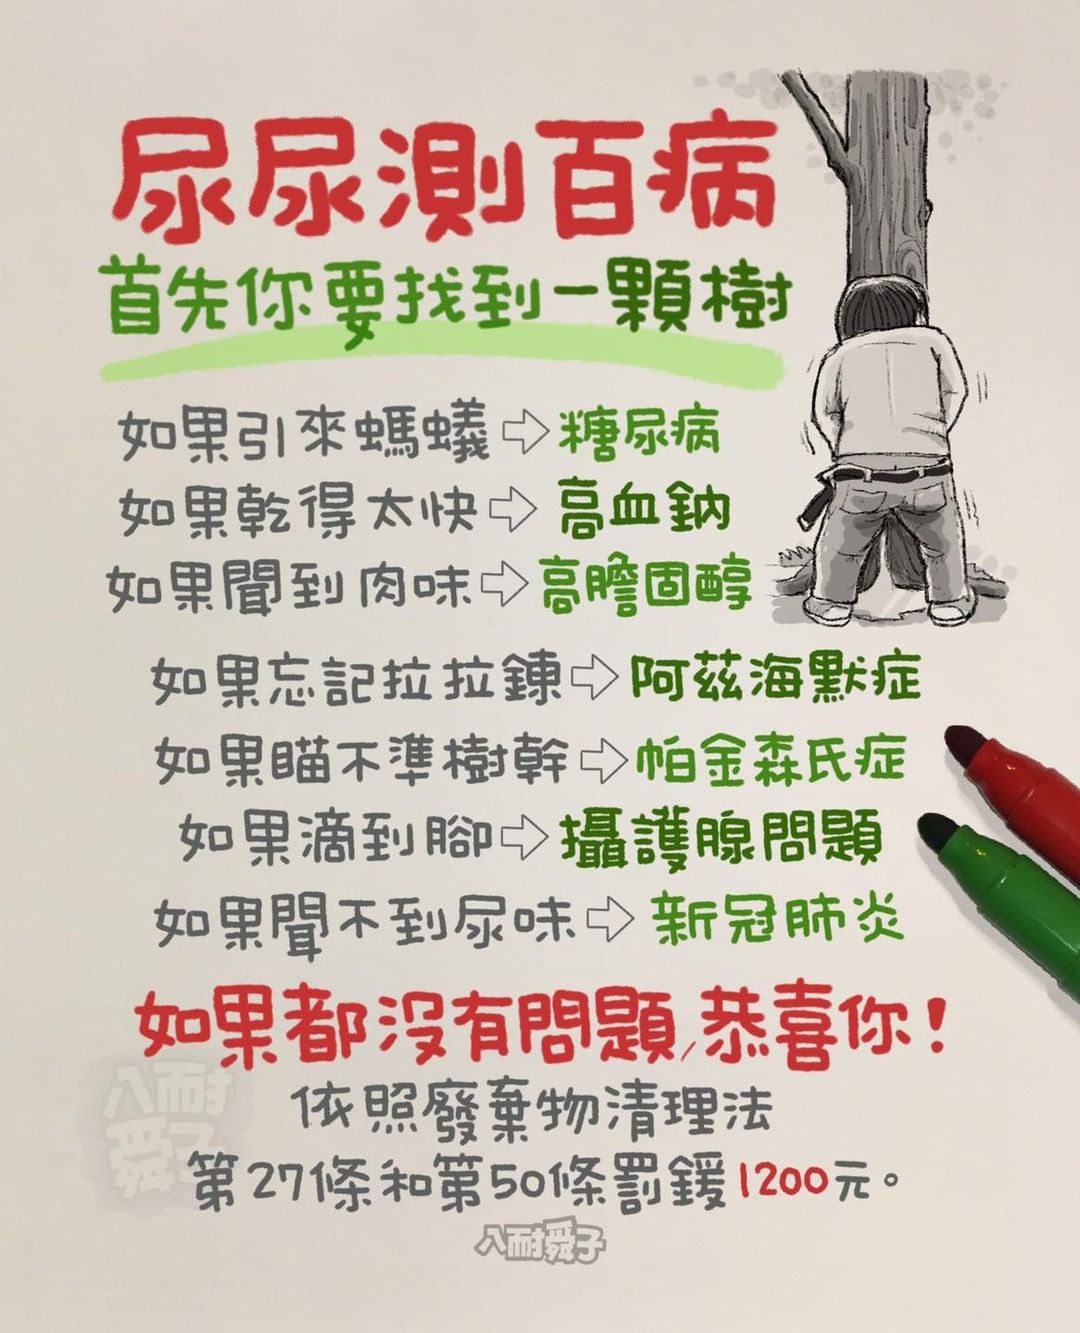 尿尿測百病
首先你要找到一顆樹
如果引來螞蟻⇨糖尿病
如果乾得太快⇨高血鈉
如果聞到肉味⇨高膽固醇
如果忘記拉拉鍊⇨阿茲海默症
如果瞄不準樹幹⇨帕金森氏症
如果滴到腳⇨攝護腺問題
如果聞不到尿味⇨新冠肺炎
如果都沒有問題,恭喜你!
依照廢棄物清理法
第27條和第50條罰鍰1200元。
八耐舜子
八耐舜子